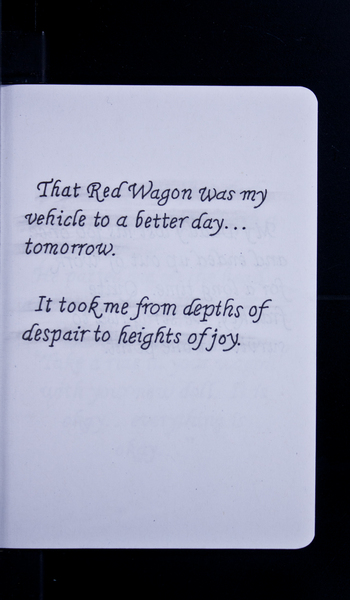 That Red Wagon was my
vehicle to a better day...
tomorrow.
It took me from depths of
despair to heights of joy.